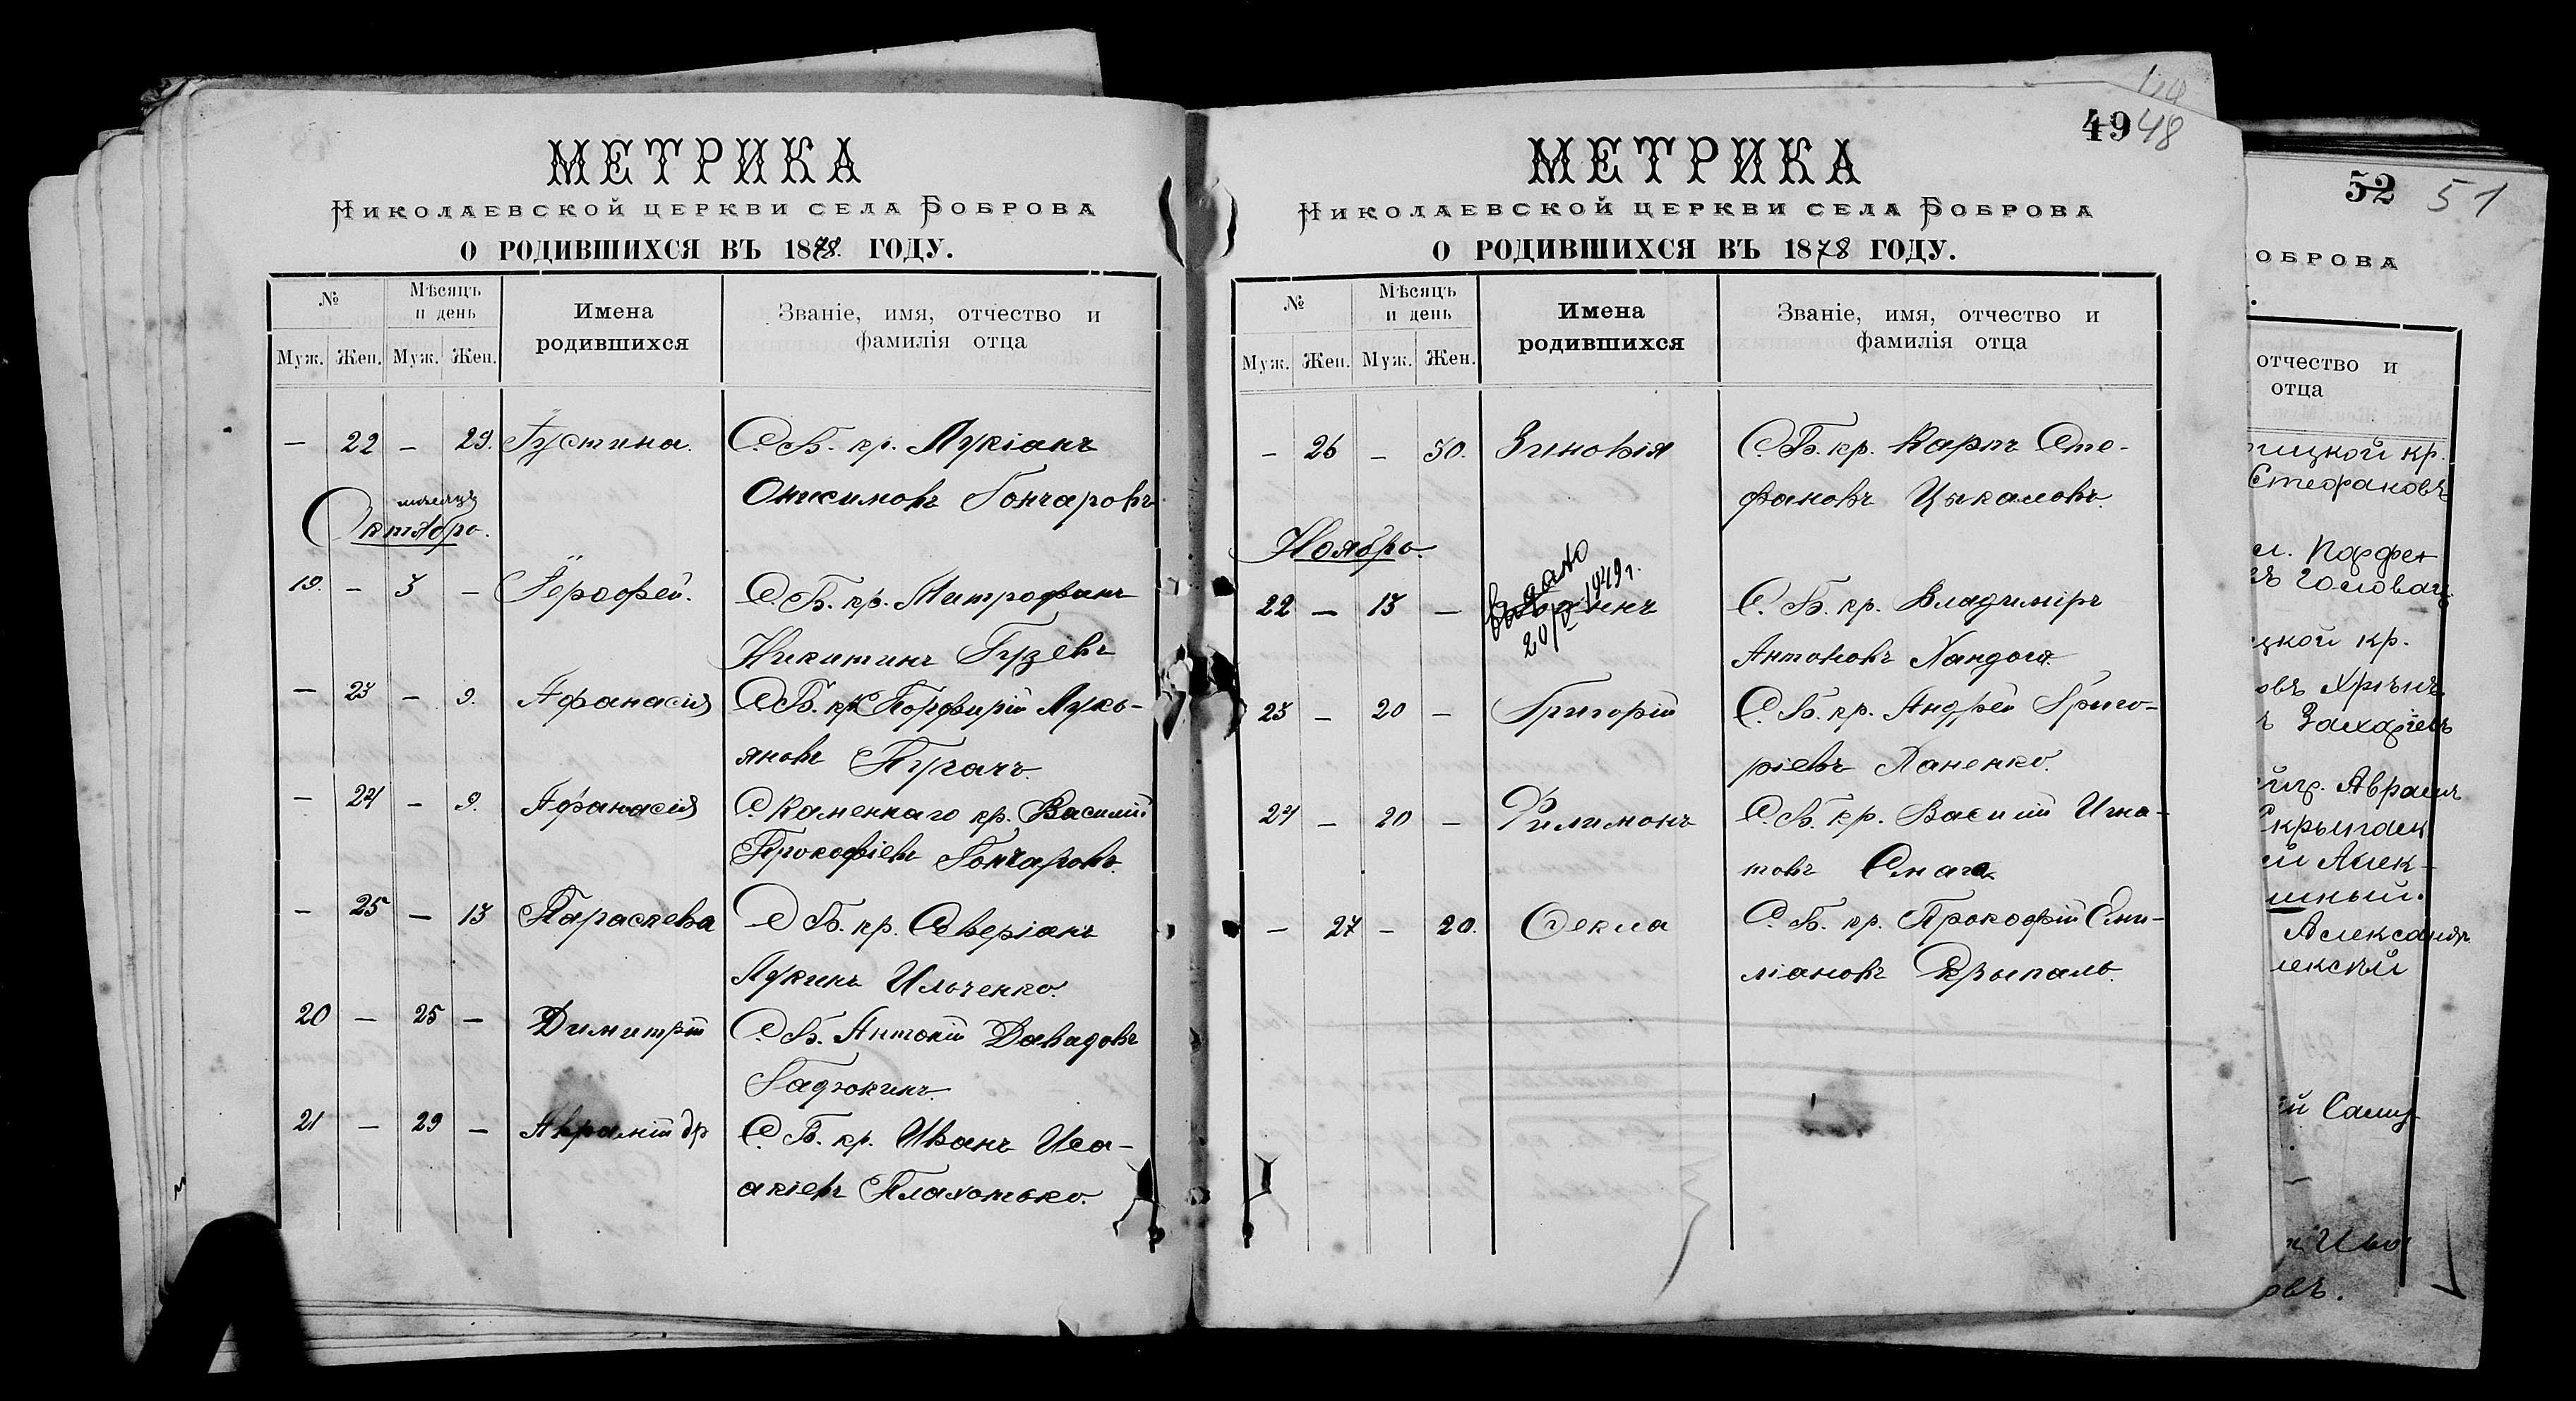 МЕТРИКА
Николаевской церкви села Боброва
О РОДИВШИХСЯ ВЪ 1878. ГОДУ.
№
Мѣсяцъ и день
Имена родившихся
Званіе, имя, отчество и фамилія отца
Муж. Жен. Муж. Жен.
— 22 — 29. Іустина. С. Б. кр. Лукіанъ
Онисимовъ Гончаровъ
мѣсяцъ
Октябрь.
19. — 3 — Іерофей. С. Б. кр. Митрофанъ
Никитинъ Гузевъ
— 23 — 9. Афанасія С. Б. кр. Порфирій Лукь-
яновъ Пугачъ.
— 24 — 9. Афанасія С. Каменнаго кр. Василій
Прокофіевъ Гончаровъ.
— 25 — 13 Параскева С. Б. кр. Северіанъ
Лукинъ Ильченко.
20 — 25 — Димитрій С. Б. Антоній Давидовъ
Гадюкинъ.
21 — 29 — Аврамій др С. Б. кр. Иванъ Иса-
акіевъ Плахотько.
49 48
МЕТРИКА
Николаевской церкви села Боброва
О РОДИВШИХСЯ ВЪ 1878 ГОДУ.
№
Мѣсяцъ и день
Имена родившихся
Званіе, имя, отчество и фамилія отца
Муж. Жен. Муж. Жен.
— 26 — 30. Зиновія С. Б. кр. Карпъ Сте-
фановъ Цѣкаловъ.
Ноябрь.
Выдано
20/V 1949 г.
22 — 13 — С. Б. кр. Владиміръ
Антоновъ Хандога.
23 — 20 — Григорій С. Б. кр. Андрей Григо-
ріевъ Ханенко.
24 — 20 — Филимонъ С. Б. кр. Василій Игна-
товъ Смага.
— 27 — 20. Ѳекла С. Б. кр. Прокофій Еми-
ліановъ Скрыпаль.
52 51
ОБРОВА
отчество и
отца
ицкой кр.
Стефановъ
Парфен
Головач
цкой кр.
овъ Хрѣнъ.
ъ Захаріевъ
Авраамъ
й Алек-
Александръ